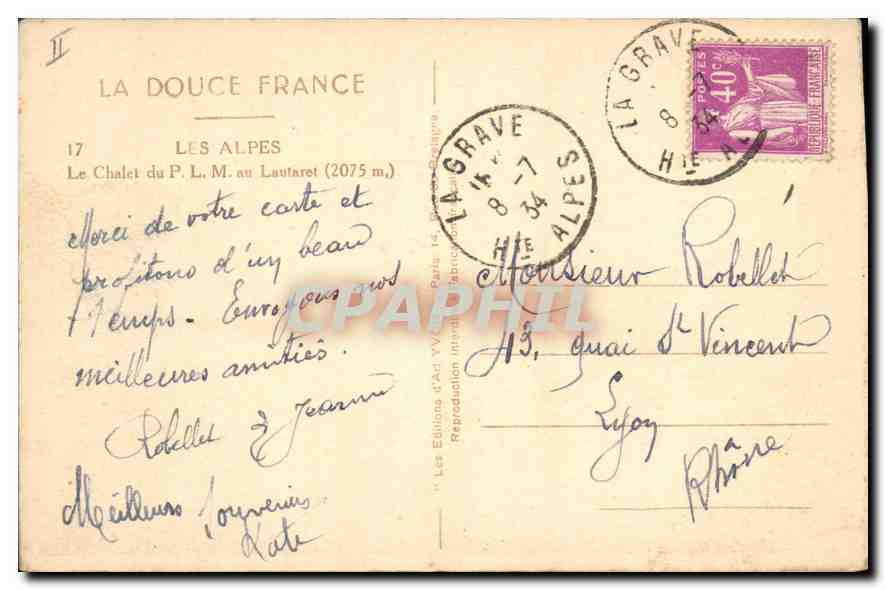 II
LA DOUCE FRANCE
17 LES ALPES
Le Chalet du P. L. M. au Lautaret (2075 m.)
Merci de votre carte et
profitons d'un beau
temps. Envoyons nos
meilleures amitiés.
Robellet & Jeanne
Meilleurs souvenirs
Kate
" Les Editions d'Art YV Paris 14, Bretagne.
Reproduction Interdite Fabrication française
LA GRAVE
8 -7
34
Hte ALPES
LA GRAVE
8 -7
34
Hte AL
POSTES
40c
REPUBLIQUE FRANÇAISE
CPAPHIL
Monsieur Robellet
43, quai St Vincent
Lyon
Rhône